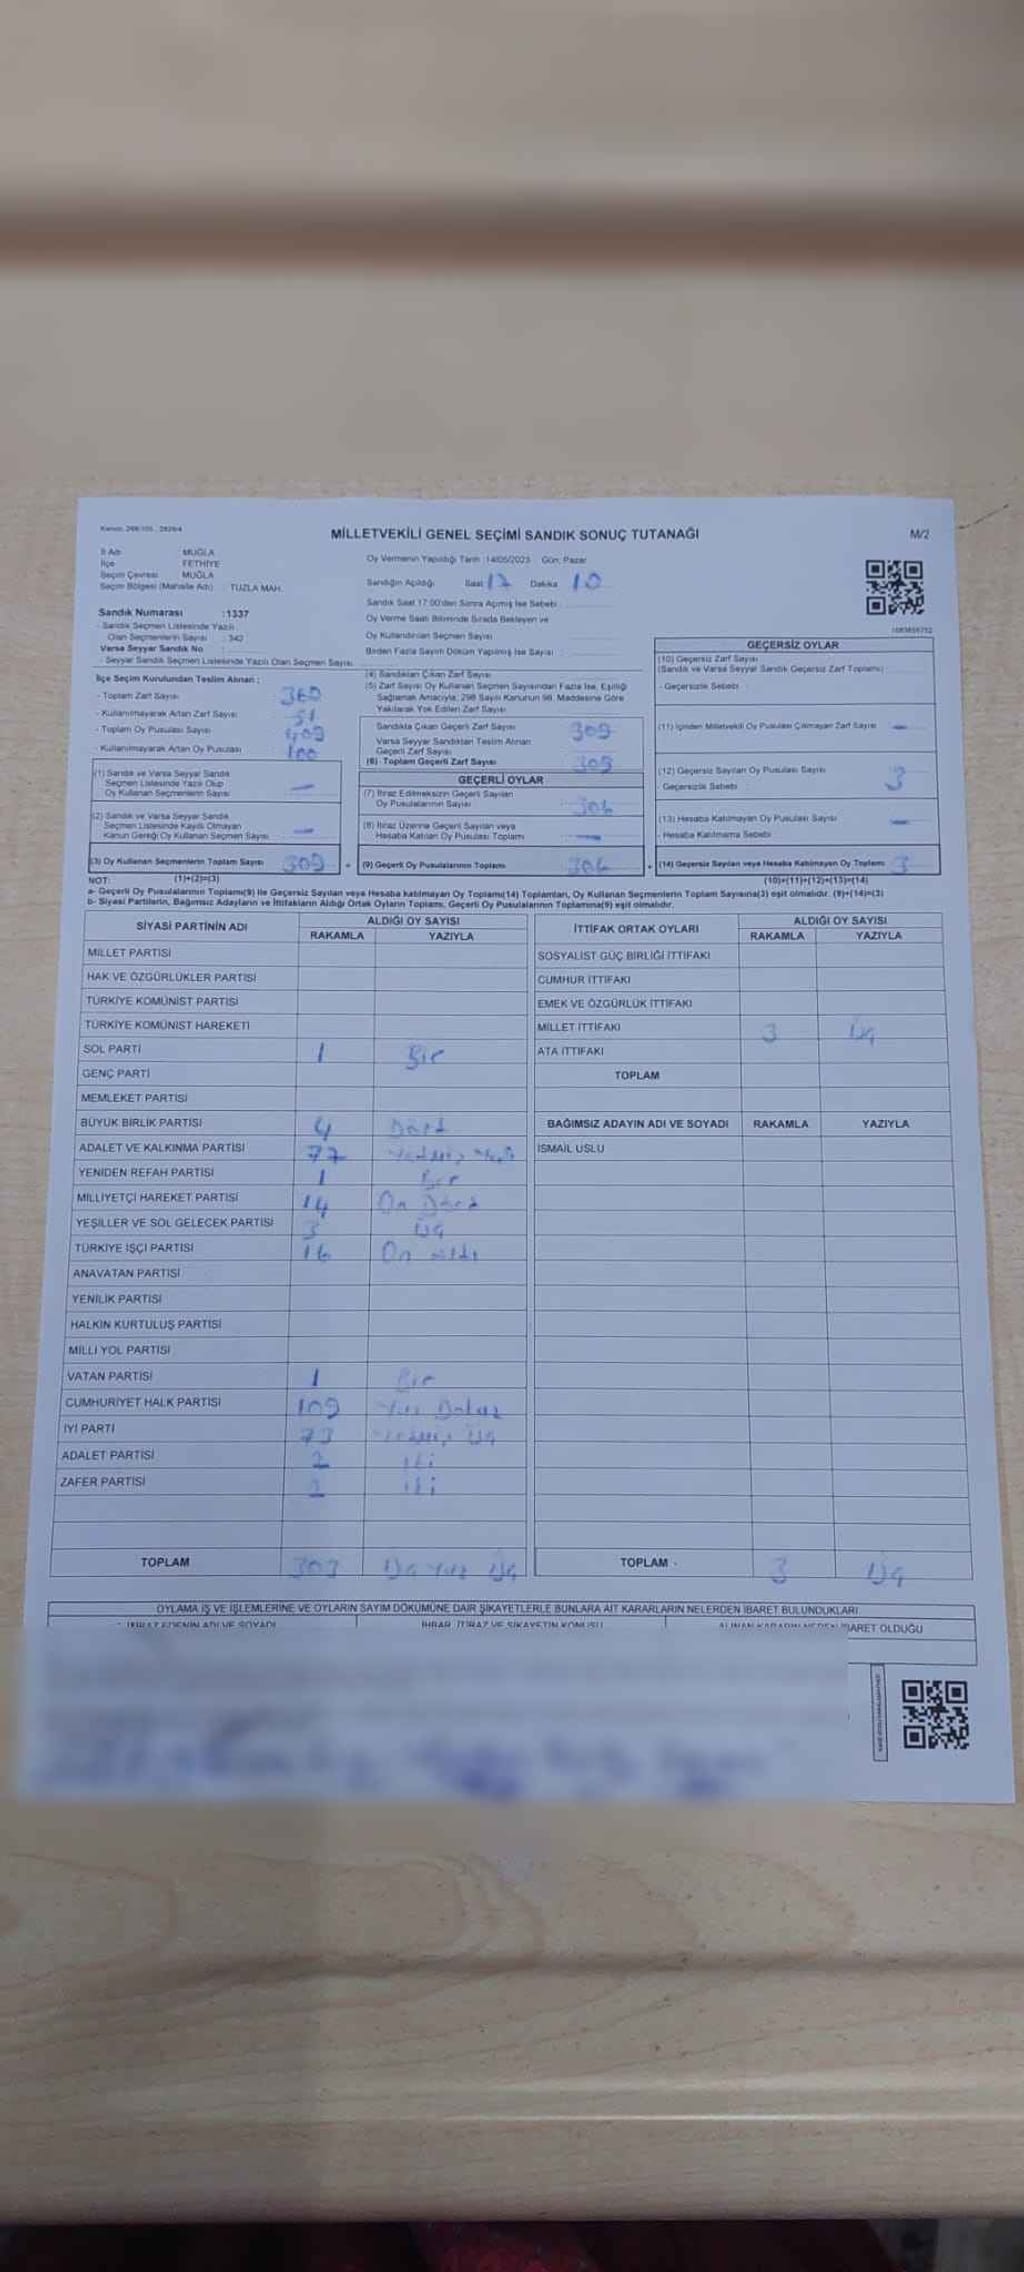 MİLLETVEKİLİ GENEL SEÇİMİ SANDIK SONUÇ TUTANAĞI
M/2
İl Adı MUĞLA
İlçe FETHİYE
Seçim Çevresi MUĞLA
Seçim Bölgesi (Mahalle Adı) : TUZLA MAH.
Oy Vermenin Yapıldığı Tarih :14/05/2023 Gün: Pazar
Sandığın Açıldığı Saat 17 Dakika 10
Sandık Saat 17:00'den Sonra Açılmış İse Sebebi
Oy Verme Saati Bitiminde Sırada Bekleyen ve
Oy Kullandırılan Seçmen Sayısı
Birden Fazla Sayım Döküm Yapılmış İse Sayısı
Sandık Numarası :1337
- Sandık Seçmen Listesinde Yazılı
Olan Seçmenlerin Sayısı : 342
Varsa Seyyar Sandık No
- Seyyar Sandık Seçmen Listesinde Yazılı Olan Seçmen Sayısı
İlçe Seçim Kurulundan Teslim Alınan ;
- Toplam Zarf Sayısı 360
- Kullanılmayarak Artan Zarf Sayısı 51
- Toplam Oy Pusulası Sayısı 409
- Kullanılmayarak Artan Oy Pusulası 100
(1) Sandık ve Varsa Seyyar Sandık
Seçmen Listesinde Yazılı Olup
Oy Kullanan Seçmenlerin Sayısı —
(2) Sandık ve Varsa Seyyar Sandık
Seçmen Listesinde Kayıtlı Olmayan
Kanun Gereği Oy Kullanan Seçmen Sayısı —
(3) Oy Kullanan Seçmenlerin Toplam Sayısı 309
(4) Sandıktan Çıkan Zarf Sayısı
(5) Zarf Sayısı Oy Kullanan Seçmen Sayısından Fazla İse, Eşitliği
Sağlamak Amacıyla, 298 Sayılı Kanunun 98. Maddesine Göre
Yakılarak Yok Edilen Zarf Sayısı
Sandıkta Çıkan Geçerli Zarf Sayısı 309
Varsa Seyyar Sandıktan Teslim Alınan
Geçerli Zarf Sayısı
(6) Toplam Geçerli Zarf Sayısı 309
GEÇERLİ OYLAR
(7) İtiraz Edilmeksizin Geçerli Sayılan
Oy Pusulalarının Sayısı 306
(8) İtiraz Üzerine Geçerli Sayılan veya
Hesaba Katılan Oy Pusulası Toplamı —
(9) Geçerli Oy Pusulalarının Toplamı 306
GEÇERSİZ OYLAR
(10) Geçersiz Zarf Sayısı
(Sandık ve Varsa Seyyar Sandık Geçersiz Zarf Toplamı)
- Geçersizlik Sebebi
(11) İçinden Milletvekili Oy Pusulası Çıkmayan Zarf Sayısı —
(12) Geçersiz Sayılan Oy Pusulası Sayısı 3
- Geçersizlik Sebebi
(13) Hesaba Katılmayan Oy Pusulası Sayısı —
- Hesaba Katılmama Sebebi
(14) Geçersiz Sayılan veya Hesaba Katılmayan Oy Toplamı 3
NOT: (1)+(2)=(3)
(10)+(11)+(12)+(13)=(14)
a- Geçerli Oy Pusulalarının Toplamı(9) ile Geçersiz Sayılan veya Hesaba katılmayan Oy Toplamı(14) Toplamları, Oy Kullanan Seçmenlerin Toplam Sayısına(3) eşit olmalıdır. (9)+(14)=(3)
b- Siyasi Partilerin, Bağımsız Adayların ve İttifakların Aldığı Ortak Oyların Toplamı, Geçerli Oy Pusulalarının Toplamına(9) eşit olmalıdır.
SİYASİ PARTİNİN ADI ALDIĞI OY SAYISI
RAKAMLA YAZIYLA
MİLLET PARTİSİ
HAK VE ÖZGÜRLÜKLER PARTİSİ
TÜRKİYE KOMÜNİST PARTİSİ
TÜRKİYE KOMÜNİST HAREKETİ
SOL PARTİ 1 Bir
GENÇ PARTİ
MEMLEKET PARTİSİ
BÜYÜK BİRLİK PARTİSİ 4 Dört
ADALET VE KALKINMA PARTİSİ 77 Yetmiş Yedi
YENİDEN REFAH PARTİSİ 1 Bir
MİLLİYETÇİ HAREKET PARTİSİ 14 On Dört
YEŞİLLER VE SOL GELECEK PARTİSİ 3 Üç
TÜRKİYE İŞÇİ PARTİSİ 16 On altı
ANAVATAN PARTİSİ
YENİLİK PARTİSİ
HALKIN KURTULUŞ PARTİSİ
MİLLİ YOL PARTİSİ
VATAN PARTİSİ 1 Bir
CUMHURİYET HALK PARTİSİ 109 Yüz Dokuz
İYİ PARTİ 73 Yetmiş Üç
ADALET PARTİSİ 2 iki
ZAFER PARTİSİ 2 iki
TOPLAM 303 Üç Yüz Üç
İTTİFAK ORTAK OYLARI ALDIĞI OY SAYISI
RAKAMLA YAZIYLA
SOSYALİST GÜÇ BİRLİĞİ İTTİFAKI
CUMHUR İTTİFAKI
EMEK VE ÖZGÜRLÜK İTTİFAKI
MİLLET İTTİFAKI 3 Üç
ATA İTTİFAKI
TOPLAM
BAĞIMSIZ ADAYIN ADI VE SOYADI RAKAMLA YAZIYLA
İSMAİL USLU
TOPLAM 3 Üç
OYLAMA İŞ VE İŞLEMLERİNE VE OYLARIN SAYIM DÖKÜMÜNE DAİR ŞİKAYETLERLE BUNLARA AİT KARARLARIN NELERDEN İBARET BULUNDUKLARI
İHBAR, İTİRAZ VE ŞİKAYETİN KONUSU
İBARET OLDUĞU